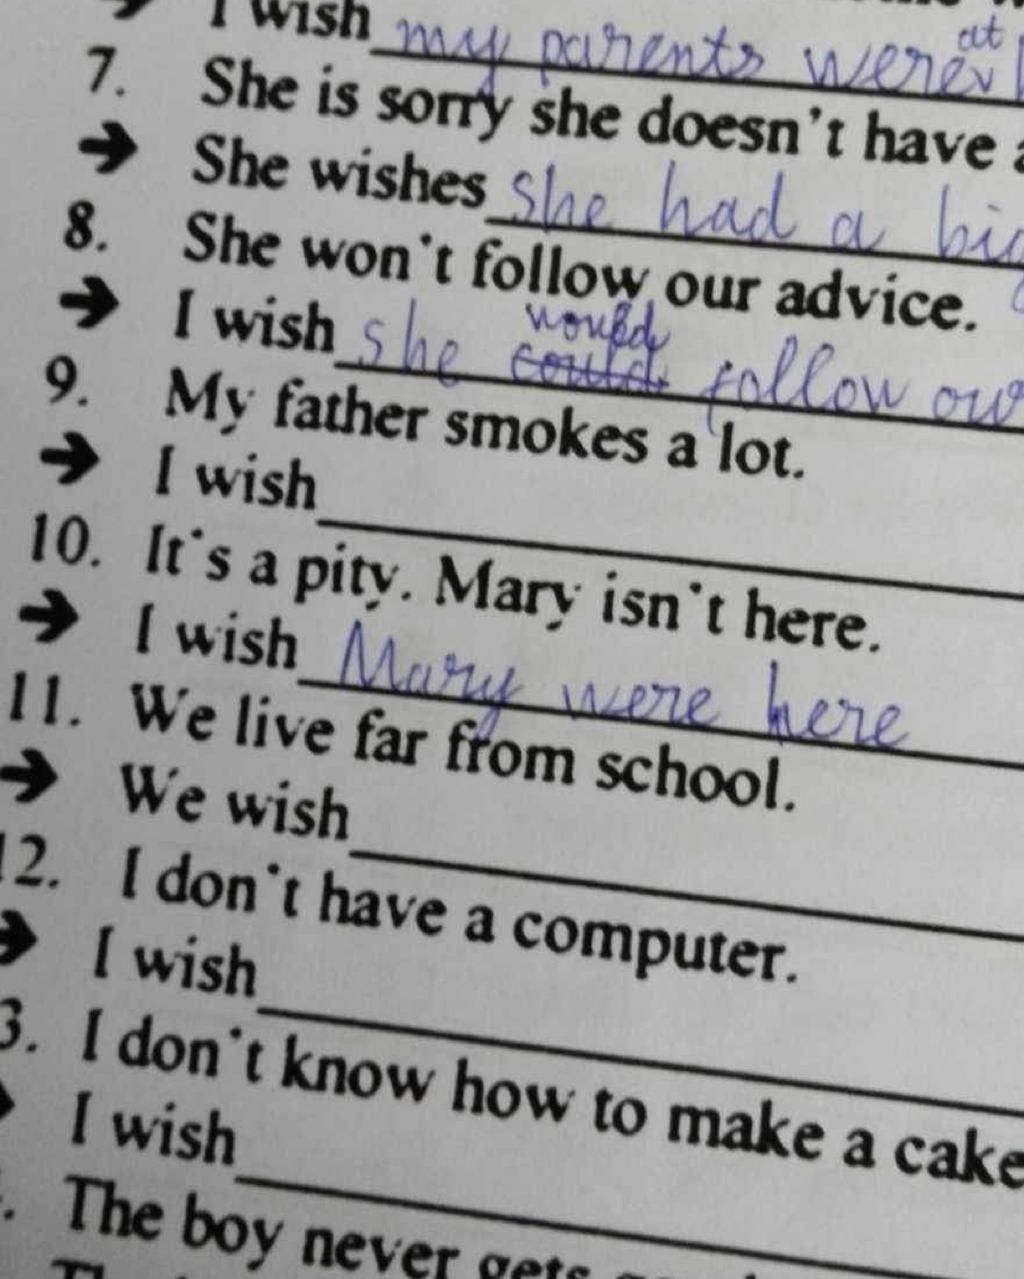 I wish my parents were at
7. She is sorry she doesn't have
→ She wishes she had a big
8. She won't follow our advice.
→ I wish she could would follow our
9. My father smokes a lot.
→ I wish
10. It's a pity. Mary isn't here.
→ I wish Mary were here
11. We live far from school.
→ We wish
12. I don't have a computer.
→ I wish
3. I don't know how to make a cake
I wish
. The boy never gets